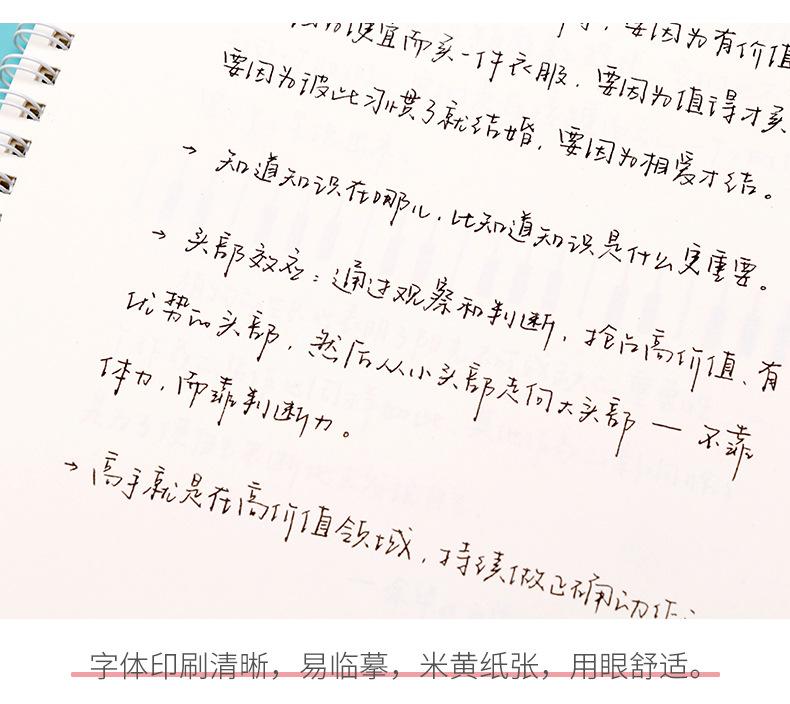 要因为有价值
便宜而买一件衣服，要因为值得才买
要因为彼此习惯了就结婚，要因为相爱才结。
→ 知道知识在哪儿，比知道知识是什么更重要。
→ 头部效应：通过观察和判断，抢占高价值、有
优势的头部，然后从小头部走向大头部 — 不靠
体力，而靠判断力。
→ 高手就是在高价值领域，持续做正确动作
字体印刷清晰，易临摹，米黄纸张，用眼舒适。